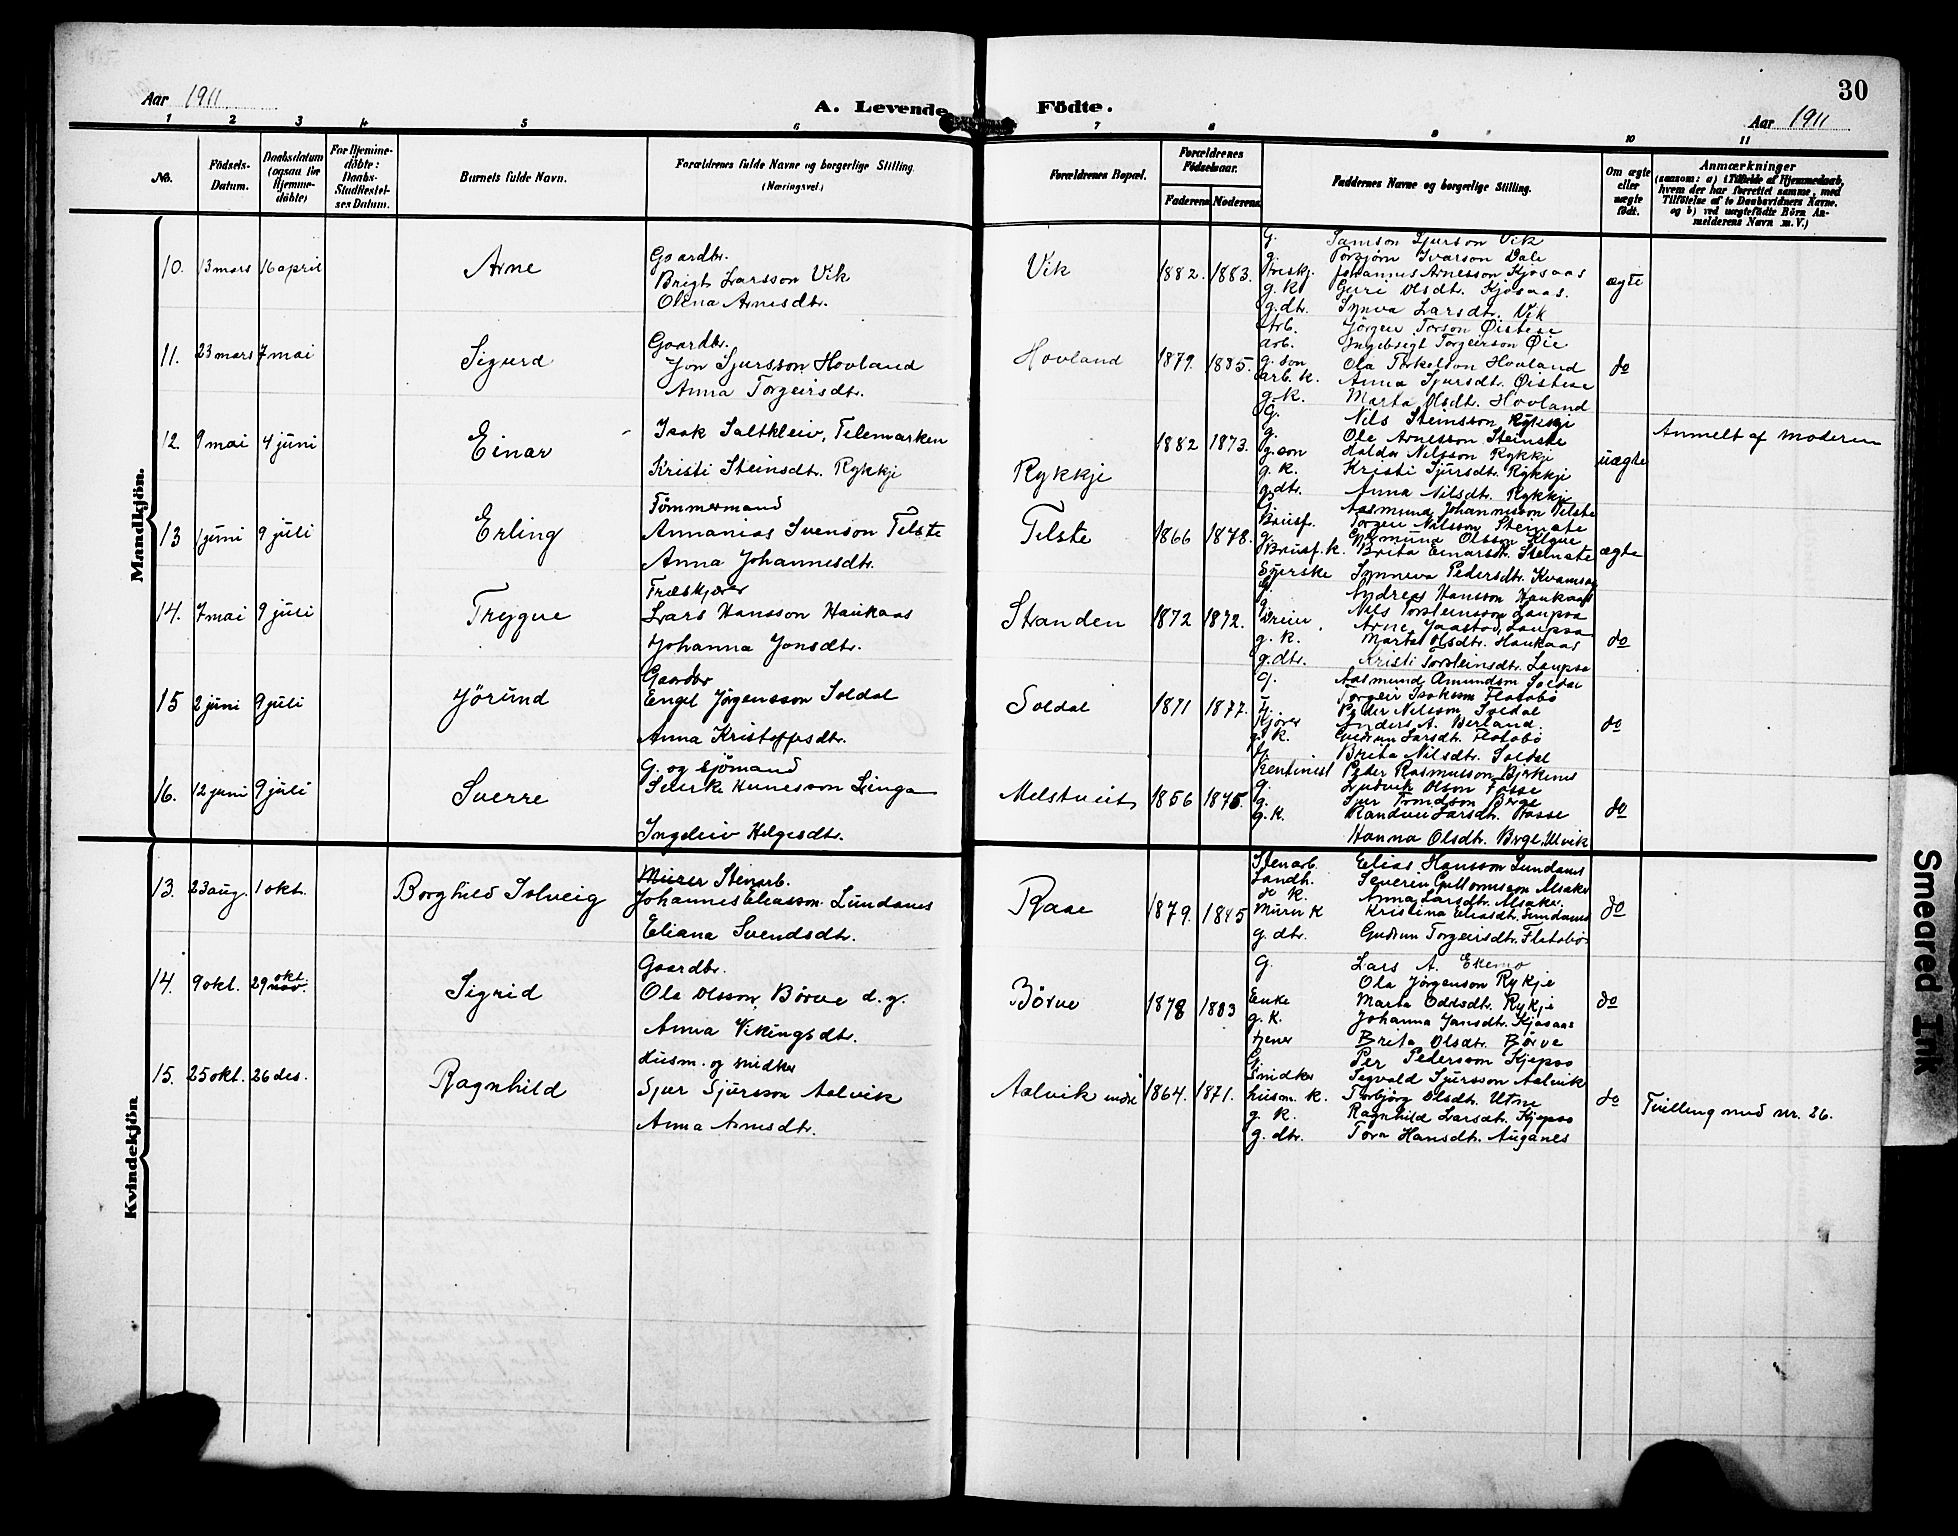 30
Aar 1911
A. Levende Födte.
Aar 1911
1 2 3 4 5 6 7 8 9 10 11
No.
Födsels-
Datum.
Daabsdatum
(ogsaa for
Hjemme-
döbte)
For Hjemme-
döbte:
Daabs-
Stadfæstel-
ses Datum.
Barnets fulde Navn.
Forældrenes fulde Navne og borgerlige Stilling.
(Næringsvei.)
Forældrenes Bopæl.
Forældrenes
Födselsaar.
Faderens Moderens
Faddernes Navne og borgerlige Stilling.
Om ægte
eller
uægte
födt.
Anmærkninger
(saasom: a) i Tilfælde af Hjemmedaab,
hvem der har forrettet samme, med
Tilföielse af to Daabsvidners Navne,
og b) ved uægtefödte Börn An-
melderens Navn m.V.)
Mandkjön.
10. 13 mars 16 april Arne
Gaardbr.
Brigt Larsson Vik
Olina Arnesdtr.
Vik 1882. 1883.
G. Samson Sjurson Vik
g. Torbjörn Ivarson Dale
Johannes Arnesson Kjosaas
g. k. Guri Olsdtr. Kjosaas.
g. dtr. Synva Larsdtr. Vik
ægte
11. 23 mars 7 mai Sigurd
Gaardbr.
Jon Sjursson Hovland
Anna Torgeirsdtr.
Hovland 1879. 1885.
Arb. Jörgen Torson Öistese
arb. Ingebrigt Torgeirson Öie
g. son Ola Torkelson Hovland
arb. k. Anna Sjursdtr. Öistese
g. k. Marta Olsdtr. Hovland
do
12. 9 mai 4 juni Einar
Isak Saltkleiv, Telemarken
Kristi Steinsdtr. Rykkje
Rykkje 1882 1873.
G. Nils Steinsson Rykkje
g. Ole Arnesson Steinstø
g. son Haldor Nilsson Rykkje
g. k. Kristi Sjursdtr. Rykkje
g. dtr. Anna Nilsdtr. Rykkje
uægte
Anmelt af moderen
13 1 juni 9 juli Erling
Tömmermand
Annanias Svenson Tilste
Anna Johannesdtr.
Tilste 1866 1878.
G. Aasmund Johannesson Tilste
Brusf. Torgeir Nilsson Steinstø
g. Gudmund Olsson
Brusf. k. Brita Einarsdtr. Steinstø
Syerske Synneva Pedersdtr. Kvamsøy
ægte
14. 7 mai 9 juli Trygve
Træskjærer
Lars Hansson Haukaas
Johanna Jonsdtr.
Stranden 1872 1872.
G. Andreas Hansson Haukaas
g. Nils Torsteinsson Laupsa
Arne Jaastad, Laupsa
g. k. Marta Olsdtr. Haukaas
g. dtr. Kristi Torsteinsdtr. Laupsa
do
15 2 juni 9 juli Jörund
Gaardbr
Engel Jörgensson Soldal
Anna Kristoffersdtr.
Soldal 1871 1877.
G. Aasmund Amundson Soldal
Torgeir Isakson Flatabö
Peder Nilsson Soldal
Anders A. Berland.
g. k. Gudrun Larsdtr. Flatabö
Brita Nilsdtr. Soldal
do
16. 12 juni 9 juli Sverre
G. og sjömand
Sverke Hennesson Linga
Ingeleiv Helgesdtr.
Melstveit 1856 1875.
Rentinist Peder Rasmusson Birkenes
g. Ludvik Olson Fosse
g. Sjur Trondson Berge
g. k. Randvei Larsdtr. Fosse
Hanna Olsdtr. Berge, Ulvik
do
Kvindekjön
13. 23 aug. 1 okt. Borghild Solveig
Murer Stenarb.
Johannes Eliasson Lundanes
Eliana Svendsdtr.
Raae 1879. 1885
Stenarb. Elias Hansson Lundanes
Landh. Severin Guttormsson Alsaker
do k. Anna Larsdtr. Alsaker.
Murer k Kristina Eliasdtr. Lundanes
g. dtr. Gudrun Torgeirsdtr. Flatabö
do
14. 9 okt. 29 okt. nov. Sigrid
Gaardbr.
Ola Olsson Börve d. y.
Anna Vikingsdtr.
Börve 1878 1883
G. Lars A. Ekemo
Ola Jörgenson Rykje
Enke Marta Oddsdtr. Rykje
g. k. Johanna Jansdtr. Kjosaas
tjener Brita Olsdtr. Börve
do
15. 25 okt. 26 des. Ragnhild
Husm. og snidker
Sjur Sjursson Aalvik
Anna Arnesdtr.
Aalvik indre 1864. 1871.
G. Per Pederson Kjepso
Snidker Sigvald Sjursson Aalvik
husm. k. Torbjörg Olsdtr. Utne
g. k. Ragnhild Larsdtr. Kjepso
g. dtr. Tora Hansdtr. Auganes
do
Tvilling med nr. 26.
Smeared Ink